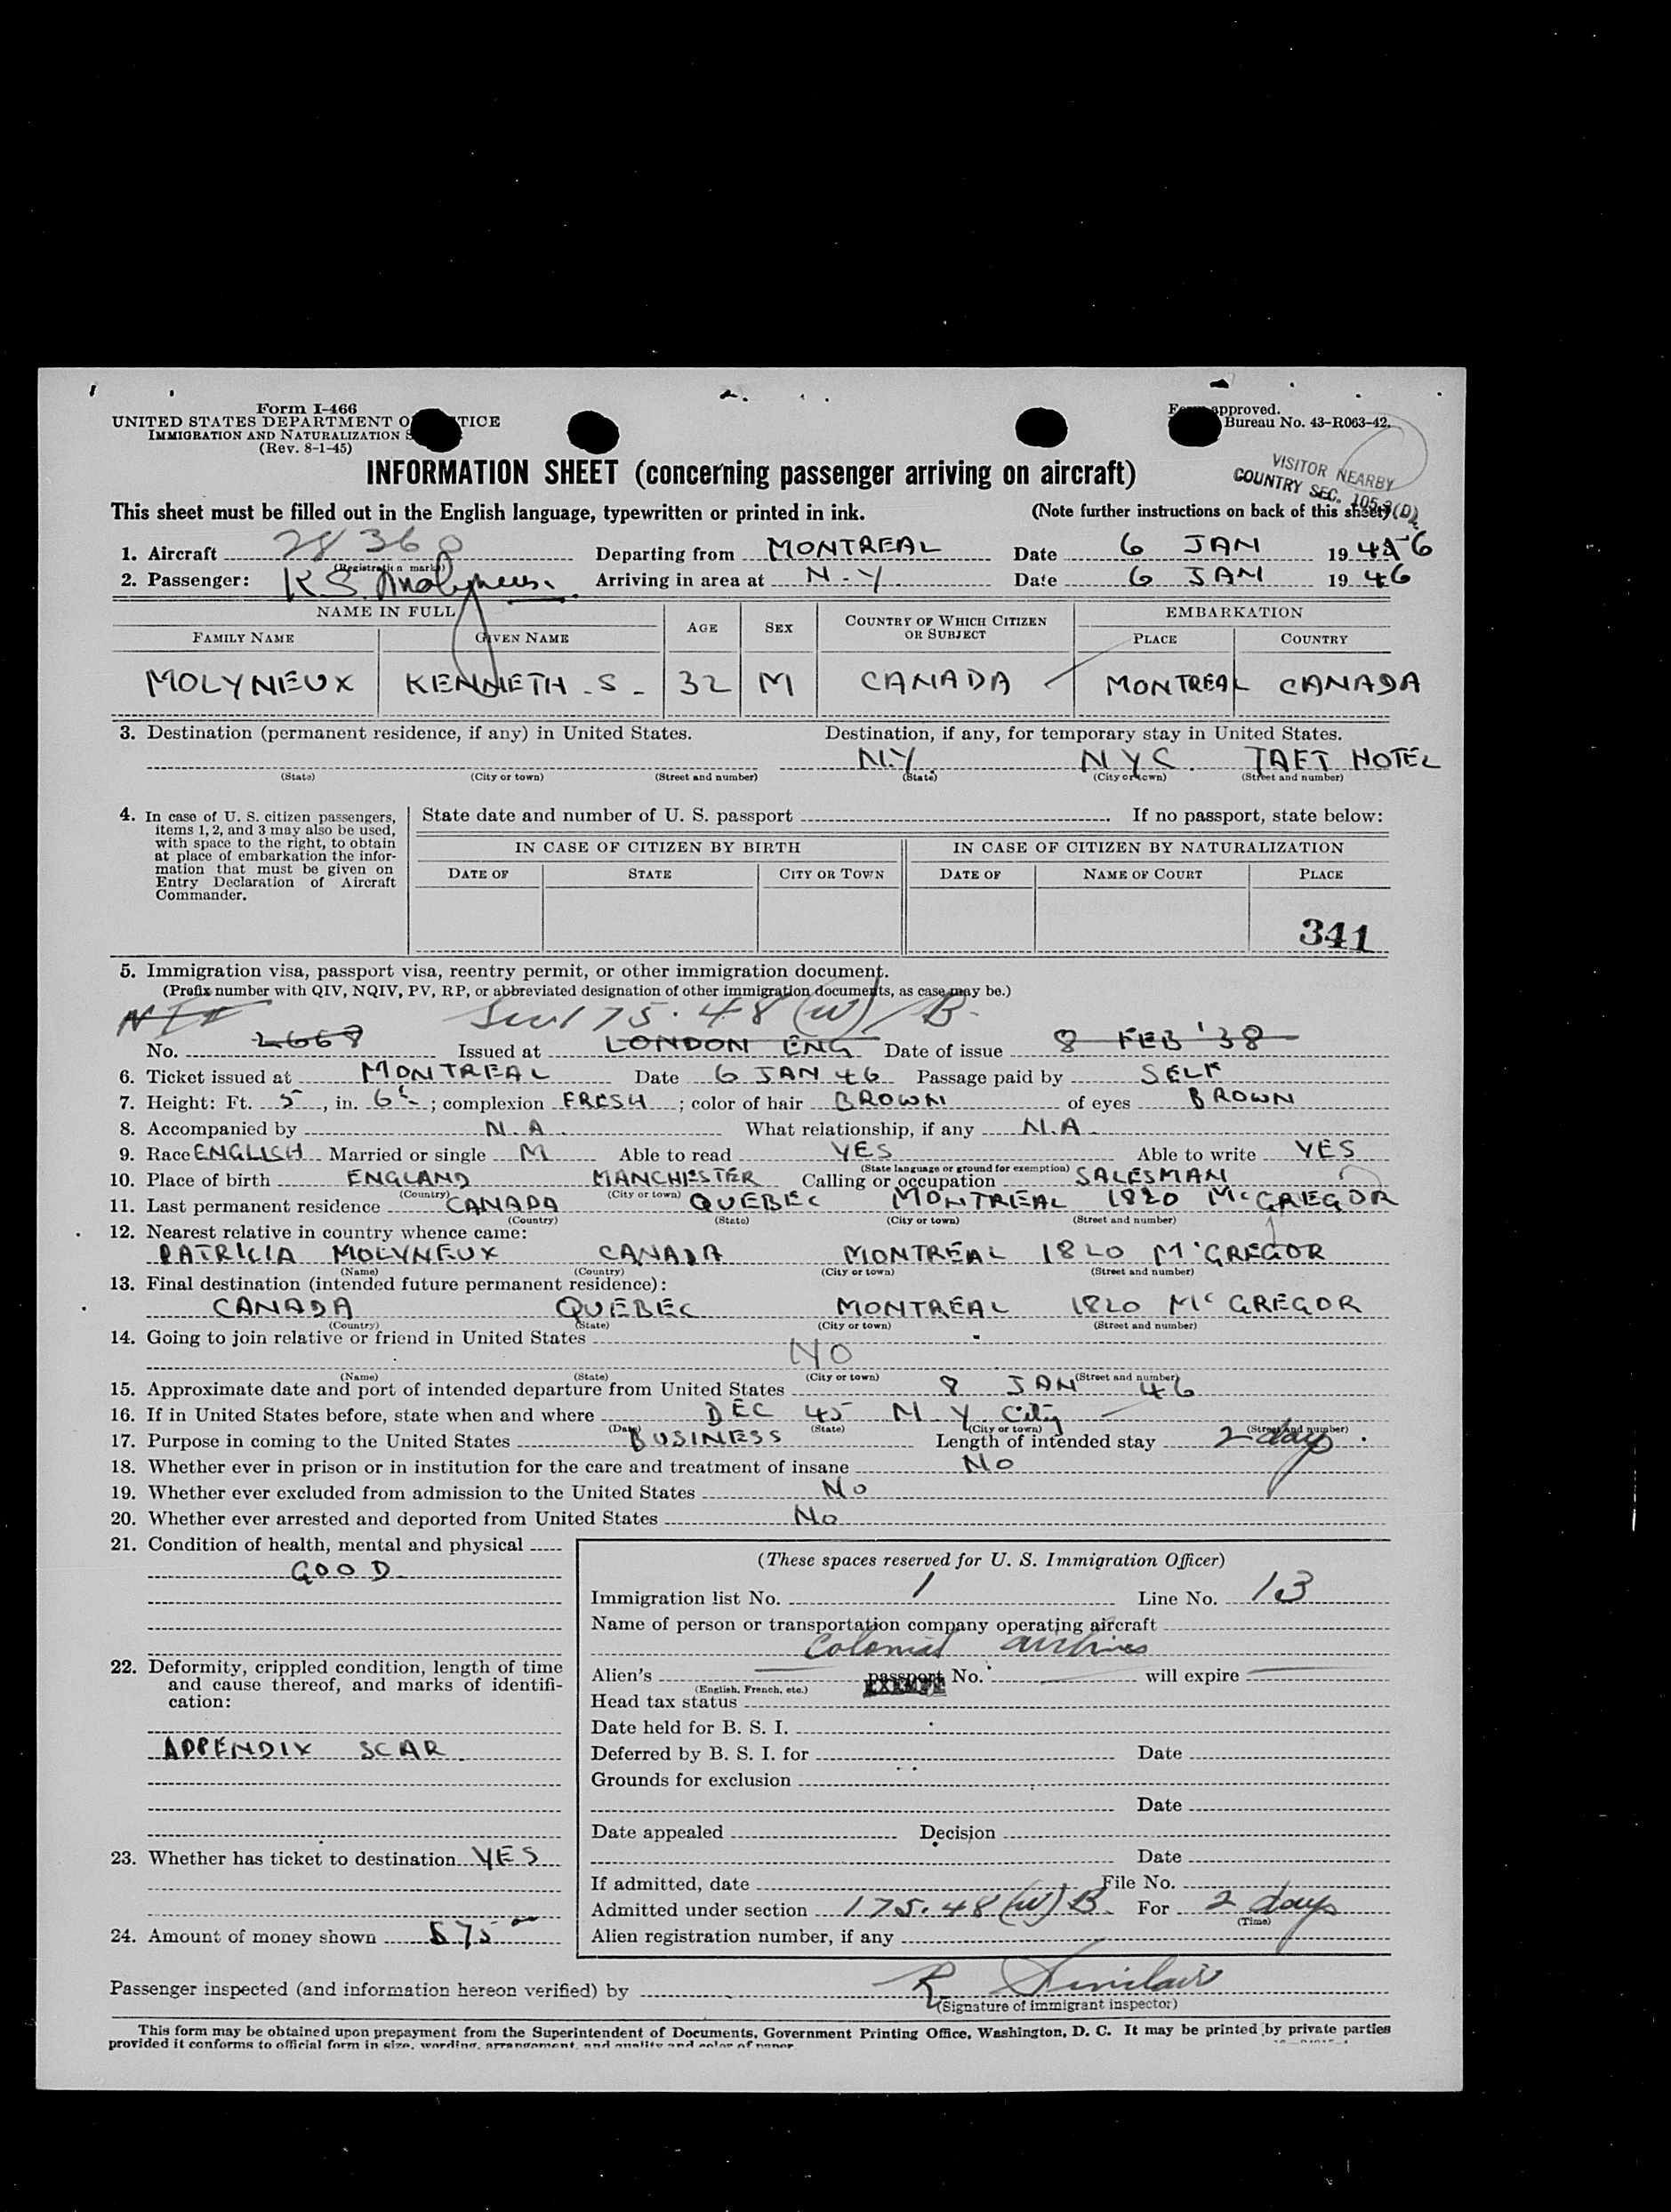 Form I-466
UNITED STATES DEPARTMENT O TICE
IMMIGRATION AND NATURALIZATION S
(Rev. 8-1-45)
approved.
Bureau No. 43-R063-42.
INFORMATION SHEET (concerning passenger arriving on aircraft)
VISITOR NEARBY
COUNTRY SEC. 105.3(D)
This sheet must be filled out in the English language, typewritten or printed in ink. (Note further instructions on back of this sheet)
1. Aircraft 28360 Departing from MONTREAL Date 6 JAN 1946
(Registration mark)
2. Passenger: K S Molyneux. Arriving in area at N-Y Date 6 JAN 1946
NAME IN FULL AGE SEX COUNTRY OF WHICH CITIZEN OR SUBJECT EMBARKATION
FAMILY NAME GIVEN NAME PLACE COUNTRY
MOLYNEUX KENNETH -S- 32 M CANADA MONTREAL CANADA
3. Destination (permanent residence, if any) in United States. Destination, if any, for temporary stay in United States.
N.Y. N Y C. TAFT HOTEL
(State) (City or town) (Street and number) (State) (City or town) (Street and number)
4. In case of U. S. citizen passengers, items 1, 2, and 3 may also be used, with space to the right, to obtain at place of embarkation the information that must be given on Entry Declaration of Aircraft Commander.
State date and number of U. S. passport If no passport, state below:
IN CASE OF CITIZEN BY BIRTH IN CASE OF CITIZEN BY NATURALIZATION
DATE OF STATE CITY OR TOWN DATE OF NAME OF COURT PLACE
341
5. Immigration visa, passport visa, reentry permit, or other immigration document.
(Prefix number with QIV, NQIV, PV, RP, or abbreviated designation of other immigration documents, as case may be.)
175.48(W)/B.
No. 2668 Issued at LONDON ENG Date of issue 8 FEB '38
6. Ticket issued at MONTREAL Date 6 JAN 46 Passage paid by SELF
7. Height: Ft. 5, in. 6½; complexion FRESH; color of hair BROWN of eyes BROWN
8. Accompanied by N.A. What relationship, if any N.A.
9. Race ENGLISH Married or single M Able to read YES Able to write YES
(State language or ground for exemption)
10. Place of birth ENGLAND MANCHESTER Calling or occupation SALESMAN
(Country) (City or town)
11. Last permanent residence CANADA QUEBEC MONTREAL 1820 McGREGOR
(Country) (State) (City or town) (Street and number)
12. Nearest relative in country whence came:
PATRICIA MOLYNEUX CANADA MONTREAL 1820 McGREGOR
(Name) (Country) (City or town) (Street and number)
13. Final destination (intended future permanent residence):
CANADA QUEBEC MONTREAL 1820 McGREGOR
(Country) (State) (City or town) (Street and number)
14. Going to join relative or friend in United States
NO
(Name) (State) (City or town) (Street and number)
15. Approximate date and port of intended departure from United States 8 JAN 46
16. If in United States before, state when and where DEC 45 N.Y. City
(Date) (State) (City or town) (Street and number)
17. Purpose in coming to the United States BUSINESS Length of intended stay 2 days.
18. Whether ever in prison or in institution for the care and treatment of insane No
19. Whether ever excluded from admission to the United States No
20. Whether ever arrested and deported from United States No
21. Condition of health, mental and physical
GOOD
22. Deformity, crippled condition, length of time and cause thereof, and marks of identification:
APPENDIX SCAR.
23. Whether has ticket to destination YES
24. Amount of money shown $75 00
(These spaces reserved for U. S. Immigration Officer)
Immigration list No. 1 Line No. 13
Name of person or transportation company operating aircraft
Colonial Airlines
Alien's passport No. will expire
(English, French, etc.) EXEMPT
Head tax status
Date held for B. S. I.
Deferred by B. S. I. for Date
Grounds for exclusion
Date
Date appealed Decision
Date
If admitted, date File No.
Admitted under section 175.48(W)B. For 2 days
(Time)
Alien registration number, if any
Passenger inspected (and information hereon verified) by R. Sinclair
(Signature of immigrant inspector)
This form may be obtained upon prepayment from the Superintendent of Documents, Government Printing Office, Washington, D. C. It may be printed by private parties
provided it conforms to official form in size, wording, arrangement, and quality and color of paper.